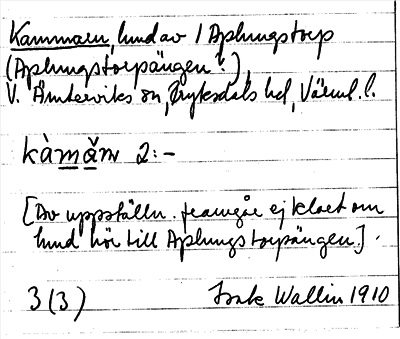 Kammaren, hud av 1 Aplungstorp
(Aplungstorpängen?),
V. Ämterviks sn, Fryksdals hd, Värml. l.
kàmăn 2:-
[Av uppställn. framgår ej klart om
hud hör till Aplungstorpängen].
3(3) Isak Wallin 1910